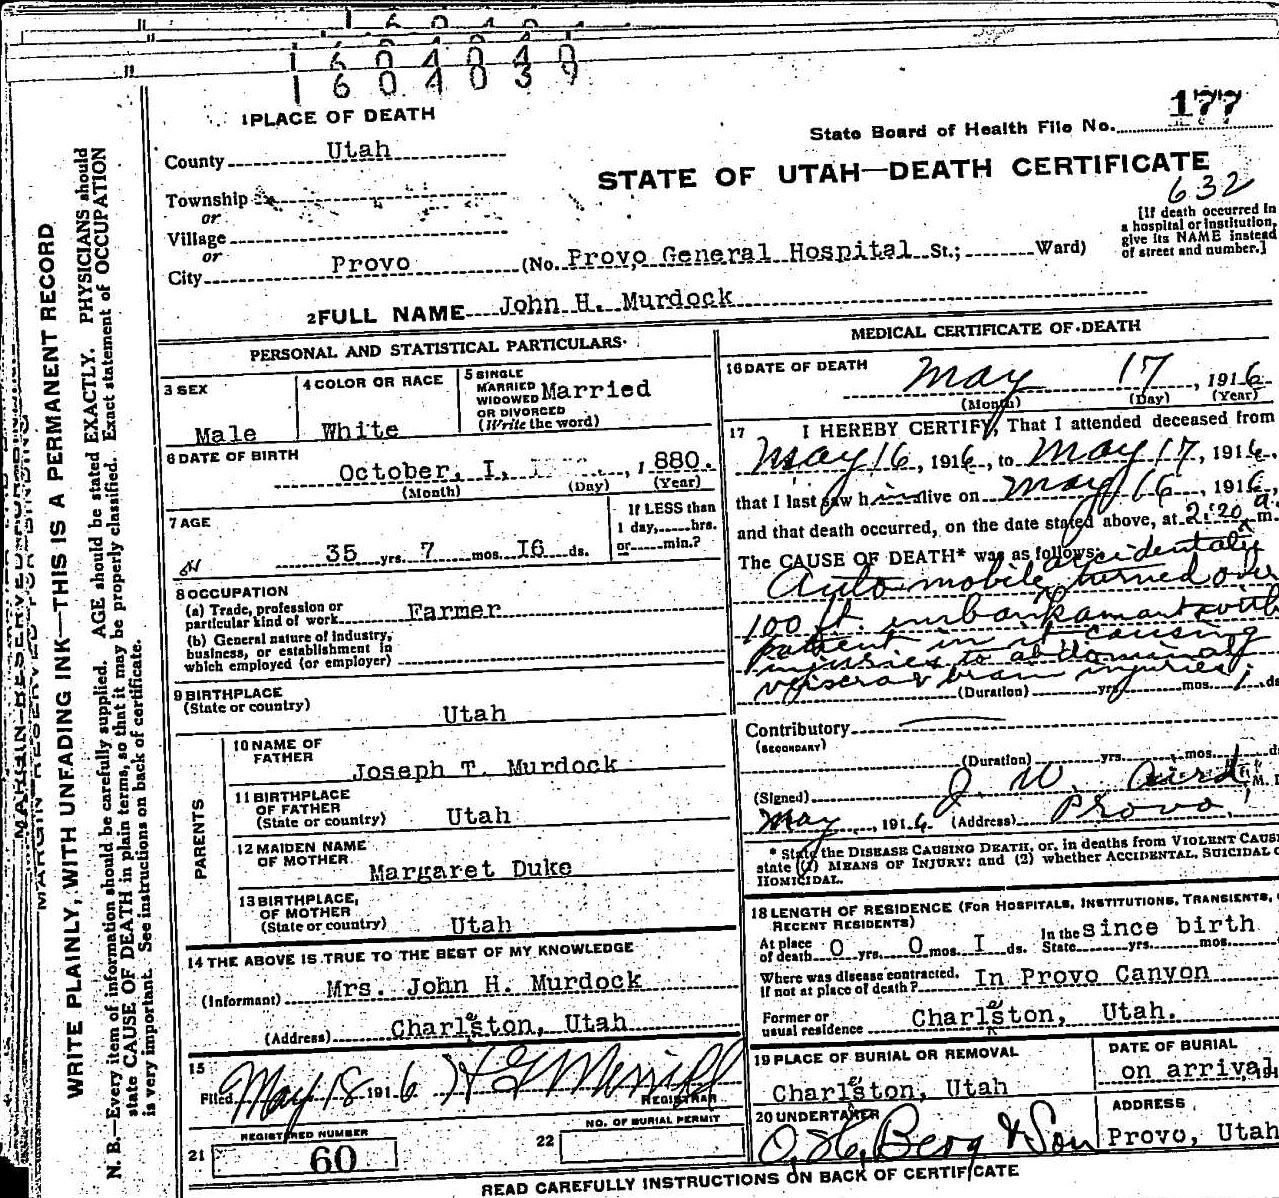 1604040
1604039
1 PLACE OF DEATH
177
State Board of Health File No.
County Utah
STATE OF UTAH—DEATH CERTIFICATE
632
Township
or
Village
or
City Provo (No. Provo General Hospital St.; Ward)
[If death occurred in
a hospital or institution,
give its NAME instead
of street and number.]
2 FULL NAME John H. Murdock
PERSONAL AND STATISTICAL PARTICULARS
3 SEX
Male
4 COLOR OR RACE
White
5 SINGLE
MARRIED
WIDOWED
OR DIVORCED
(Write the word)
Married
6 DATE OF BIRTH
October, I, 1880.
(Month) (Day) (Year)
7 AGE
35 yrs. 7 mos. I6 ds.
If LESS than
1 day, hrs.
or min.?
8 OCCUPATION
(a) Trade, profession or
particular kind of work Farmer
(b) General nature of industry,
business, or establishment in
which employed (or employer)
9 BIRTHPLACE
(State or country)
Utah
PARENTS
10 NAME OF
FATHER
Joseph T. Murdock
11 BIRTHPLACE
OF FATHER
(State or country) Utah
12 MAIDEN NAME
OF MOTHER
Margaret Duke
13 BIRTHPLACE,
OF MOTHER
(State or country) Utah
14 THE ABOVE IS TRUE TO THE BEST OF MY KNOWLEDGE
(Informant) Mrs. John H. Murdock
(Address) Charleston, Utah
15
Filed May 18 1916 H G Merrill
REGISTRAR
REGISTERED NUMBER
21 60
NO. OF BURIAL PERMIT
22
MEDICAL CERTIFICATE OF DEATH
16 DATE OF DEATH
May 17, 1916
(Month) (Day) (Year)
17 I HEREBY CERTIFY, That I attended deceased from
May 16, 1916, to May 17, 1916,
that I last saw him alive on May 16, 1916,
and that death occurred, on the date stated above, at 2:20 a m.
The CAUSE OF DEATH* was as follows: accidentaly
Automobile turned over
100 ft. imbankamant with
patient in it causing
injuries to abdominal
veiscra & brain injuries
(Duration) yrs mos. 1 ds
Contributory
(SECONDARY)
(Duration) yrs. mos. d
(Signed) J. W. Aird M. D
May, 1916 (Address) Provo
* State the DISEASE CAUSING DEATH, or, in deaths from VIOLENT CAUS
state (1) MEANS OF INJURY: and (2) whether ACCIDENTAL, SUICIDAL O
HOMICIDAL.
18 LENGTH OF RESIDENCE (FOR HOSPITALS, INSTITUTIONS, TRANSIENTS,
RECENT RESIDENTS)
At place
of death 0 yrs. 0 mos. I ds. In the State since birth yrs. mos.
Where was disease contracted,
If not at place of death? In Provo Canyon
Former or
usual residence Charleston, Utah.
19 PLACE OF BURIAL OR REMOVAL
Charleston, Utah
DATE OF BURIAL
on arrival
20 UNDERTAKER
O. H. Berg & Son
ADDRESS
Provo, Utah
READ CAREFULLY INSTRUCTIONS ON BACK OF CERTIFICATE
MARGIN RESERVED FOR BINDING
WRITE PLAINLY, WITH UNFADING INK—THIS IS A PERMANENT RECORD
N. B.—Every item of information should be carefully supplied. AGE should be stated EXACTLY. PHYSICIANS should
state CAUSE OF DEATH in plain terms, so that it may be properly classified. Exact statement of OCCUPATION
is very important. See instructions on back of certificate.